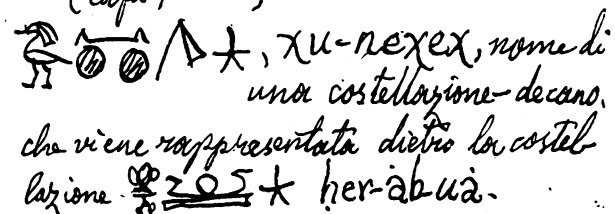 xu-nexex, nome di
una costellazione-decano,
che viene rappresentata dietro la costel-
lazione her-àb-uà.